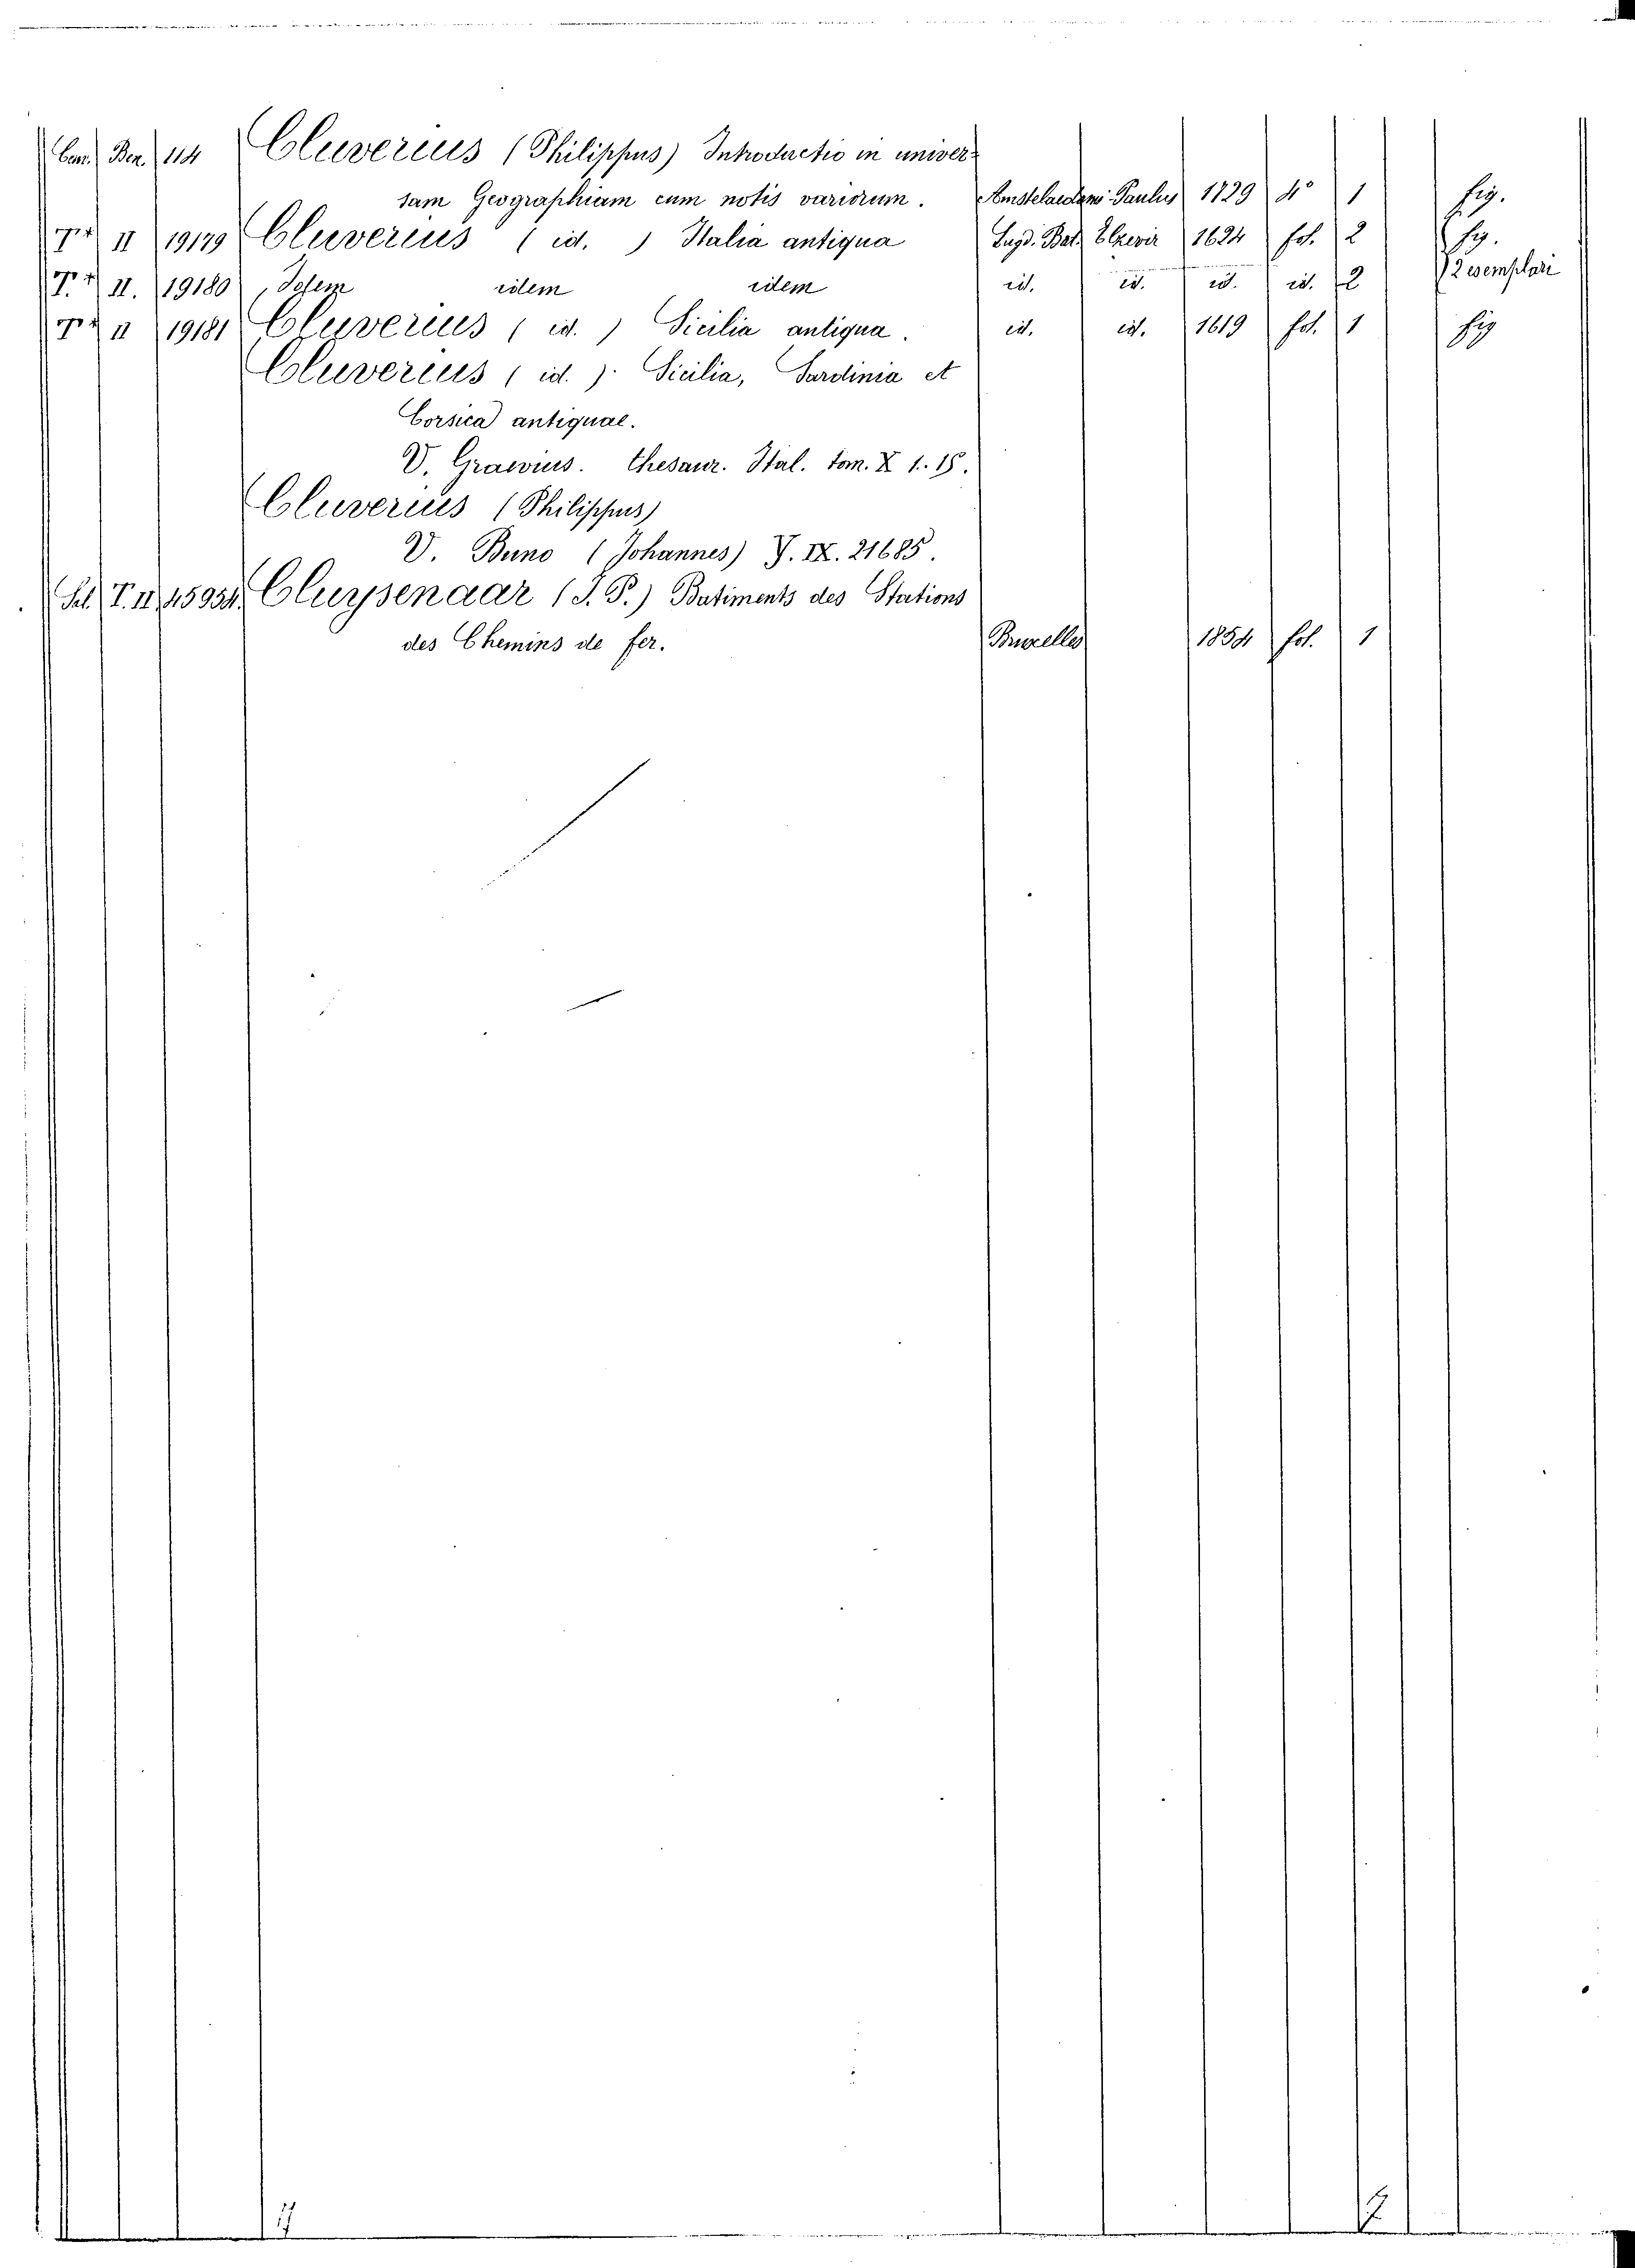 Ben. 114 Cluverius (Philippus) Introductio in univer-
sam Geographiam cum notis variorum. Amstelaedami Paulus 1729 4° 1 fig.
II 19179 Cluverius (id.) Italia antiqua Lugd. Bat. Elzevir 1624 fol. 2 fig.
II. 19180 Idem idem idem id. id. id. id. 2 2 esemplari
II 19181 Cluverius (id.) Sicilia antiqua. id. id. 1619 fol. 1 fig
Cluverius (id.). Sicilia, Sardinia et
Corsica antiquae.
V. Graevius. Thesaur. Ital. tom. X 1. 15.
Cluverius (Philippus)
V. Buno (Johannes) V. IX. 21685.
Sal. T. II 45934 Cluysenaar (J. P.) Batiments des Stations
des Chemins de fer. Bruxelles 1854 fol. 1